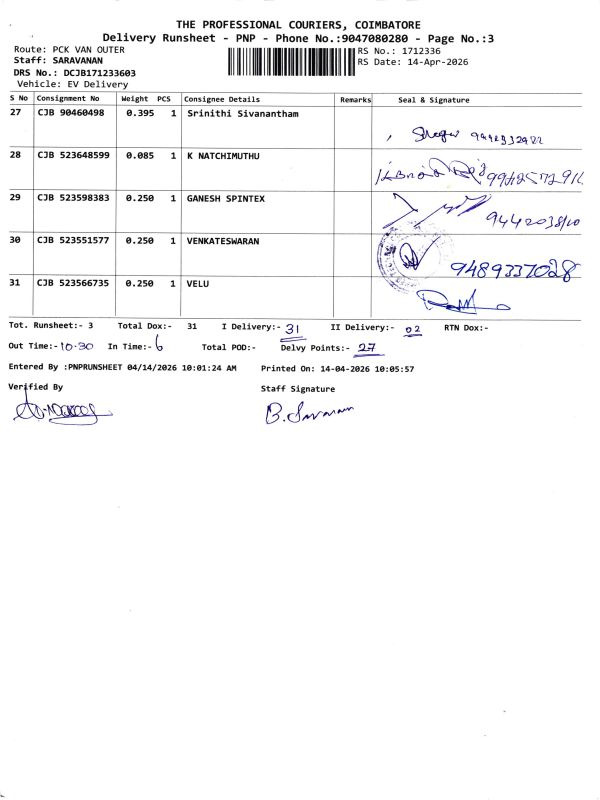 THE PROFESSIONAL COURIERS, COIMBATORE
Delivery Runsheet - PNP - Phone No.:9047080280 - Page No.:3
Route: PCK VAN OUTER
RS No.: 1712336
Staff: SARAVANAN
RS Date: 14-Apr-2026
DRS No.: DCJB171233603
Vehicle: EV Delivery
S No Consignment No Weight PCS Consignee Details Remarks Seal & Signature
27 CJB 90460498 0.395 1 Srinithi Sivanantham
28 CJB 523648599 0.085 1 K NATCHIMUTHU
29 CJB 523598383 0.250 1 GANESH SPINTEX
30 CJB 523551577 0.250 1 VENKATESWARAN
9489337028
31 CJB 523566735 0.250 1 VELU
Tot. Runsheet:- 3 Total Dox:- 31 I Delivery:- 31 II Delivery:- 02 RTN Dox:-
Out Time:- 10.30 In Time:- 6 Total POD:- Delvy Points:- 27
Entered By :PNPRUNSHEET 04/14/2026 10:01:24 AM Printed On: 14-04-2026 10:05:57
Verified By Staff Signature